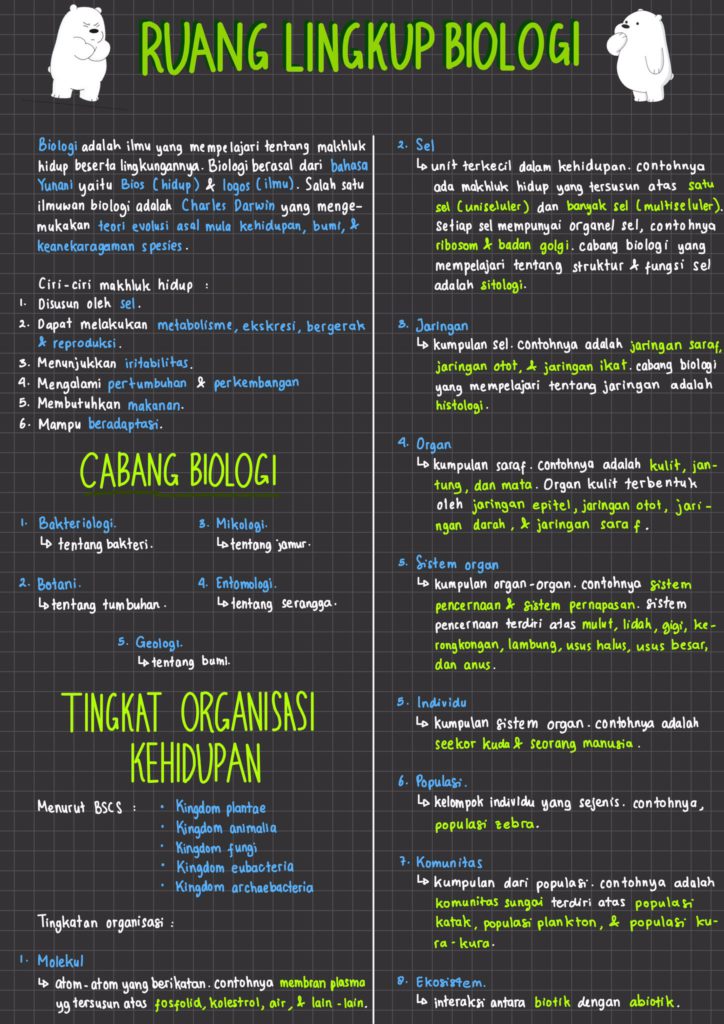 RUANG LINGKUP BIOLOGI
Biologi adalah ilmu yang mempelajari tentang makhluk
hidup beserta lingkungannya. Biologi berasal dari bahasa
Yunani yaitu Bios (hidup) & logos (ilmu). Salah satu
ilmuwan biologi adalah Charles Darwin yang menge-
mukakan teori evolusi asal mula kehidupan, bumi, &
keanekaragaman spesies.
Ciri-ciri makhluk hidup :
1. Disusun oleh sel.
2. Dapat melakukan metabolisme, ekskresi, bergerak
& reproduksi.
3. Menunjukkan iritabilitas.
4. Mengalami pertumbuhan & perkembangan
5. Membutuhkan makanan.
6. Mampu beradaptasi.
CABANG BIOLOGI
1. Bakteriologi.
↳ tentang bakteri.
2. Botani.
↳ tentang tumbuhan.
3. Mikologi.
↳ tentang jamur.
4. Entomologi.
↳ tentang serangga.
5. Geologi.
↳ tentang bumi.
TINGKAT ORGANISASI
KEHIDUPAN
Menurut BSCS : • Kingdom plantae
• Kingdom animalia
• Kingdom fungi
• Kingdom eubacteria
• Kingdom archaebacteria
Tingkatan organisasi :
1. Molekul
↳ atom-atom yang berikatan. contohnya membran plasma
yg tersusun atas fosfolid, kolestrol, air, & lain-lain.
2. Sel
↳ unit terkecil dalam kehidupan. contohnya
ada makhluk hidup yang tersusun atas satu
sel (uniseluler) dan banyak sel (multiseluler).
Setiap sel mempunyai organel sel, contohnya
ribosom & badan golgi. cabang biologi yang
mempelajari tentang struktur & fungsi sel
adalah sitologi.
3. Jaringan
↳ kumpulan sel. contohnya adalah jaringan saraf,
jaringan otot, & jaringan ikat. cabang biologi
yang mempelajari tentang jaringan adalah
histologi.
4. Organ
↳ kumpulan saraf. contohnya adalah kulit, jan-
tung, dan mata. Organ kulit terbentuk
oleh jaringan epitel, jaringan otot, jari-
ngan darah, & jaringan saraf.
5. Sistem organ
↳ kumpulan organ-organ. contohnya sistem
pencernaan & sistem pernapasan. sistem
pencernaan terdiri atas mulut, lidah, gigi, ke-
rongkongan, lambung, usus halus, usus besar,
dan anus.
5. Individu
↳ kumpulan sistem organ. contohnya adalah
seekor kuda & seorang manusia.
6. Populasi.
↳ kelompok individu yang sejenis. contohnya,
populasi zebra.
7. Komunitas
↳ kumpulan dari populasi. contohnya adalah
komunitas sungai terdiri atas populasi
katak, populasi plankton, & populasi ku-
ra-kura.
8. Ekosistem.
↳ interaksi antara biotik dengan abiotik.